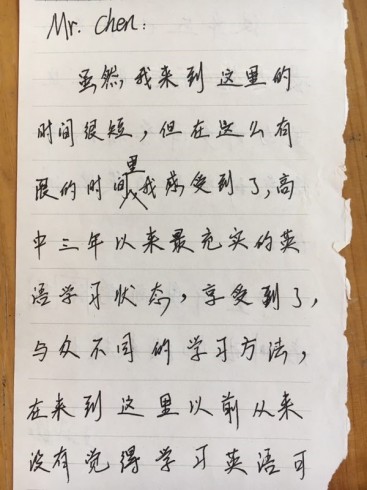 Mr. Chen:
虽然我来到这里的
时间很短，但在这么有
限的时间里我感受到了，高
中三年以来最充实的英
语学习状态，享受到了，
与众不同的学习方法，
在来到这里以前从来
没有觉得学习英语可